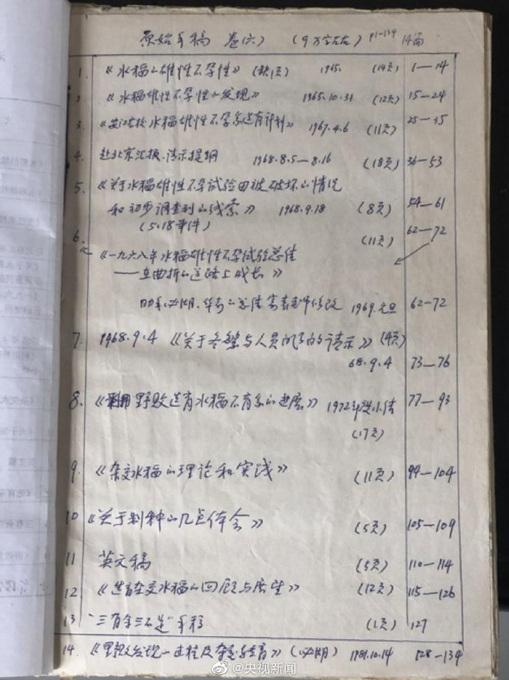 原始手稿 卷(六) (9万字左右) P1-134 14篇
1. 《水稻的雄性不孕性》(缺1页) 1965. (14页) 1—14
2. 《水稻雄性不孕性的发现》 1965.10.31 (12页) 15—24
3. 《安江农校水稻雄性不孕系选育计划》 1967.4.6 (11页) 25—35
4. 赴北京汇报、请示提纲 1968.8.5—8.16 (18页) 36—53
5. 《关于水稻雄性不孕试验田被破坏的情况
和初步调查到的线索》 1968.9.18 (8页) 54—61
(5.18事件)
6. (11页) 62—72
《一九六八年水稻雄性不孕试验总结
——在曲折的道路上成长》
1969.元旦 62—72
7. 1968.9.4 《关于冬繁与人员问题的请示》(4页)
68.9.4 73—76
8. 《利用野败选育水稻不育系的进展》 1972年 77—93
(17页)
9. 《杂交水稻的理论和实践》 (11页) 94—104
10 《关于制种的几点体会》 (5页) 105—109
11 英文稿 (5页) 110—114
12 《选育杂交水稻的回顾与展望》 (12页) 115—126
13 "三有余三不足" 手稿 (1页) 127
14. 《野败发现 过程及 》 1981.10.14 128—134
@央视新闻